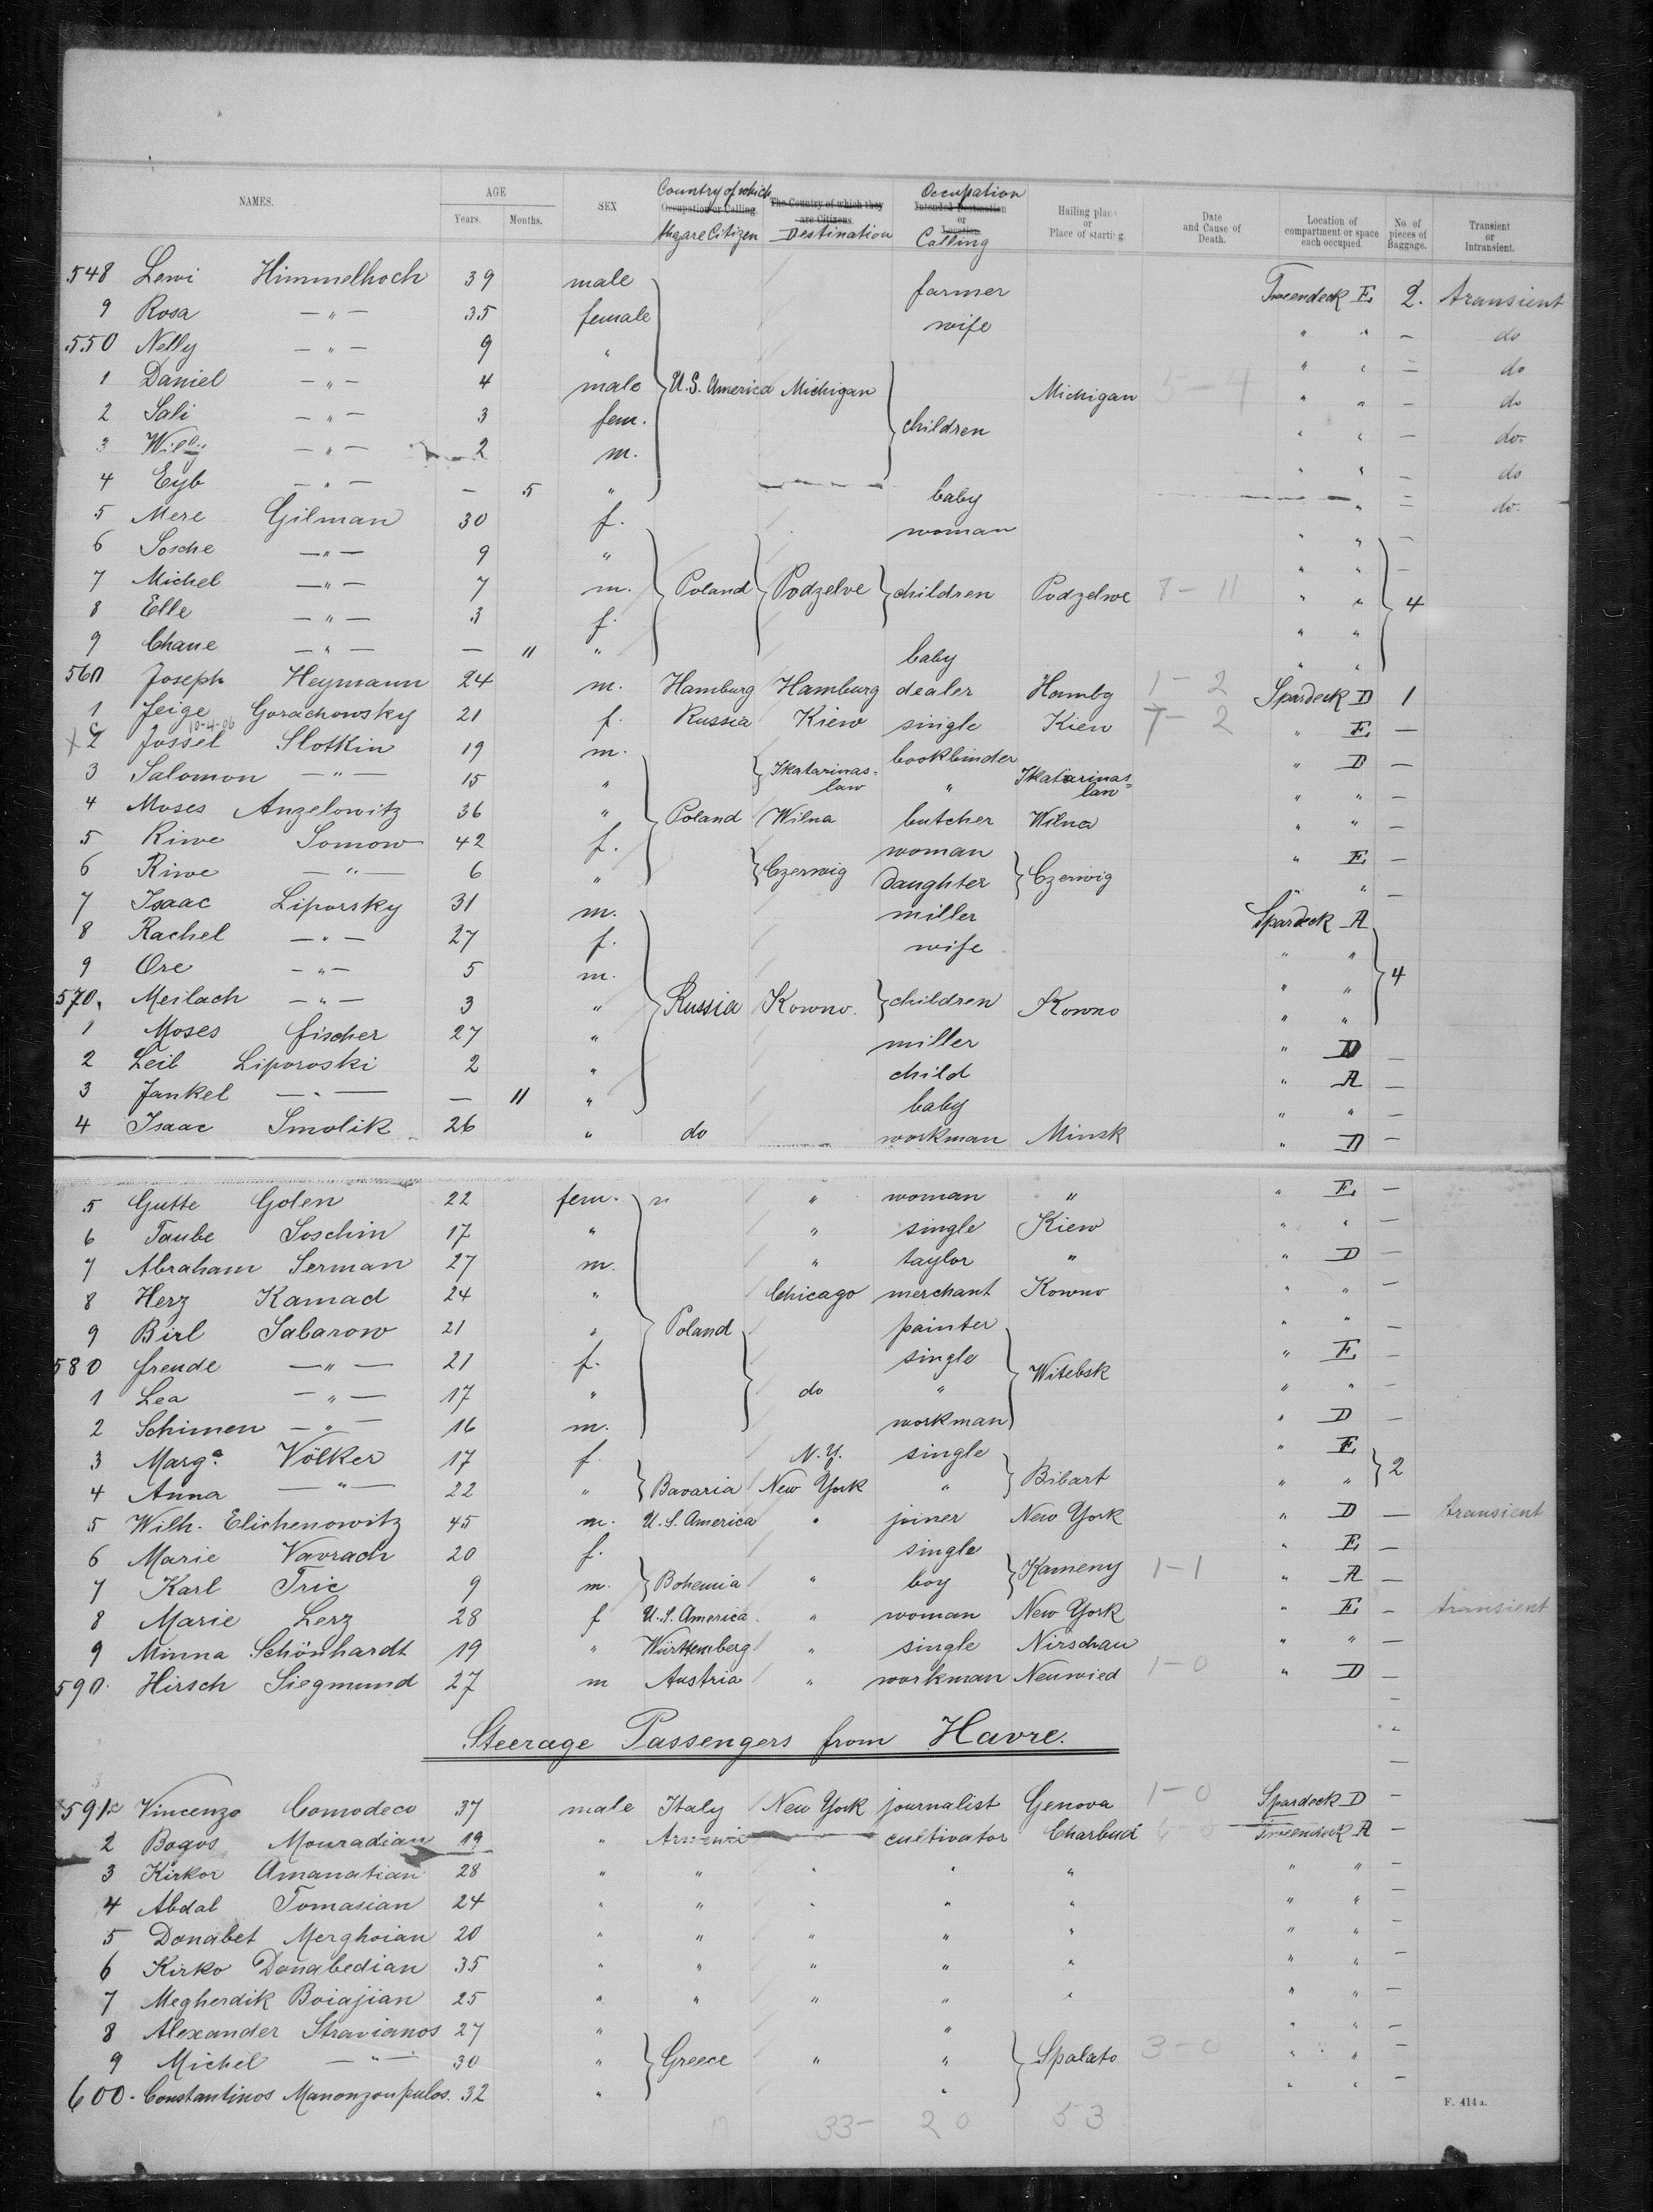 NAMES. AGE Years. Months. SEX Country of which they are Citizen Destination Occupation or Calling Hailing place or Place of starting. Date and Cause of Death. Location of compartment or space each occupied. No. of pieces of Baggage. Transient or Intransient.
548 Lewi Himmelhoch 39 male farmer Tweendeck E 2. transient
9 Rosa — " — 35 female wife " " — do
550 Nelly — " — 9 " " " — do
1 Daniel — " — 4 male U.S. America Michigan Michigan " " — do
2 Sali — " — 3 fem. children " " — do
3 Willy — " — 2 m. " " — do
4 Eyb — " — — 5 " baby " — do.
5 Mere Gilman 30 f. woman " " —
6 Sosche — " — 9 " " " —
7 Michel — " — 7 m. Poland Podzelve children Podzelwe 7 - 11 " " 4
8 Elle — " — 3 f. " "
9 Chane — " — — 11 " baby " "
560 Joseph Heymann 24 m. Hamburg Hamburg dealer Hambg 1 - 2 Spardeck D 1
1 Feige Gorachowsky 21 f. Russia Kiew single Kiew 7 - 2 " E —
10-4-06
x 2 Jossel Slotkin 19 m. bookbinder " D —
3 Salomon — " — 15 " Ikatarinas=law " Ikatarinas=law " " —
4 Moses Anzelowitz 36 " Poland Wilna butcher Wilna " " —
5 Riwe Somow 42 f. woman " E —
6 Riwe — " — 6 " Czerwig Daughter Czerwig " " —
7 Isaac Liporsky 31 m. miller Spardeck A
8 Rachel — " — 27 f. wife " "
9 Ore — " — 5 m. " " 4
570. Meilach — " — 3 " Russia Kowno. children Kowno " "
1 Moses Fischer 27 " miller " D —
2 Leib Liporoski 2 " child " A —
3 Jankel — " — — 11 " baby " " —
4 Isaac Smolik 26 " do workman Minsk " D —
5 Gutte Golen 22 fem. " " woman " " E —
6 Taube Soschin 17 " " single Kiew " " —
7 Abraham Serman 27 m. " taylor " " D —
8 Herz Kamad 24 " Chicago merchant Kowno " " —
9 Birl Sabarow 21 " Poland painter " " —
580 Freude — " — 21 f. single Witebsk " E —
1 Lea — " — 17 " do " " " —
2 Schimen — " — 16 m. workman " D —
3 Marg.a Völker 17 f N.Y. single " E 2
4 Anna — " — 22 " Bavaria New York " Bibart " "
5 Wilh. Elichenowitz 45 m. U.S. America " joiner New York " D — transient
6 Marie Vavrach 20 f. single " E —
7 Karl Tric 9 m. Bohemia " boy Kameny 1 - 1 " A —
8 Marie Lerz 28 f U.S. America " woman New York " E — transient
9 Minna Schönhardt 19 " Württemberg " single Nirschau " " —
590. Hirsch Siegmund 27 m Austria " workman Neuwied 1 - 0 " D —
Steerage Passengers from Havre.
591 Vincenzo Comodeco 37 male Italy New York journalist Genova 1 - 0 Spardeck D —
2 Bogos Mouradian 19 " cultivator Charbud 6 - 0 Tweendeck A —
3 Kirkor Amanatian 28 " " " " " " " —
4 Abdal Tomasian 24 " " " " " " " —
5 Donabet Merghoian 20 " " " " " " " —
6 Kirko Donabedian 35 " " " " " " " —
7 Megherdik Boiajian 25 " " " " " " " —
8 Alexander Stravianos 27 " " " " —
9 Michel — " — 30 " Greece " " Spalato 3 - 0 " " —
600. Constantinos Manonzoupulos. 32 " " " " —
33- 20 53
F. 414 a.